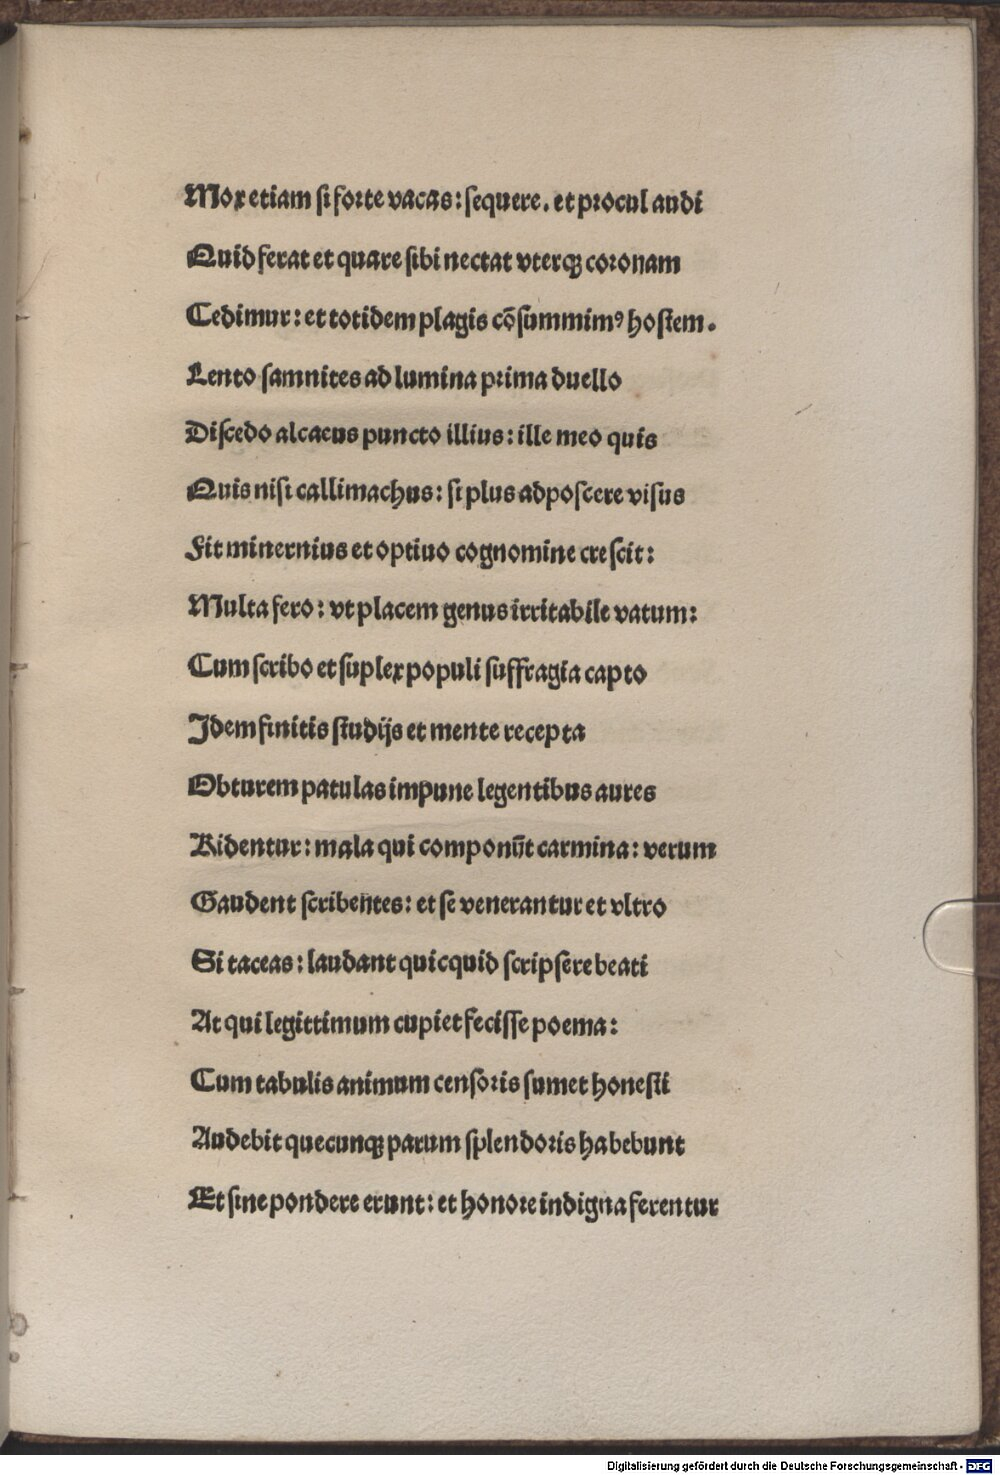 Mox etiam si forte vacas: sequere. et procul audi
Quid ferat et quare sibi nectat vterqꝫ coronam
Cedimur: et totidem plagis cõsummimꝰ hostem.
Lento samnites ad lumina prima duello
Discedo alcaeus puncto illius: ille meo quis
Quis nisi callimachus: si plus adposcere visus
Fit minernius et optiuo cognomine crescit:
Multa fero: vt placem genus irritabile vatum:
Cum scribo et suplex populi suffragia capto
Idem finitis studijs et mente recepta
Obturem patulas impune legentibus aures
Ridentur: mala qui componũt carmina: verum
Gaudent scribentes: et se venerantur et vltro
Si taceas: laudant quicquid scripsere beati
At qui legittimum cupiet fecisse poema:
Cum tabulis animum censoris sumet honesti
Audebit quecunqꝫ parum splendoris habebunt
Et sine pondere erunt: et honore indigna ferentur
Digitalisierung gefördert durch die Deutsche Forschungsgemeinschaft - DFG